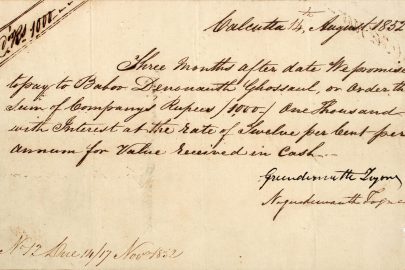 Rs 1000
Calcutta 14th August 1852
Three Months after date We promise
to pay to Baboo Denonauth Ghossaul, or Order the
Sum of Companys Rupees /1000/ One Thousand
with Interest at the rate of Twelve per Cent per
annum for Value received in Cash
Nogendernauth
No 12 Due 14/17 Novr 1852